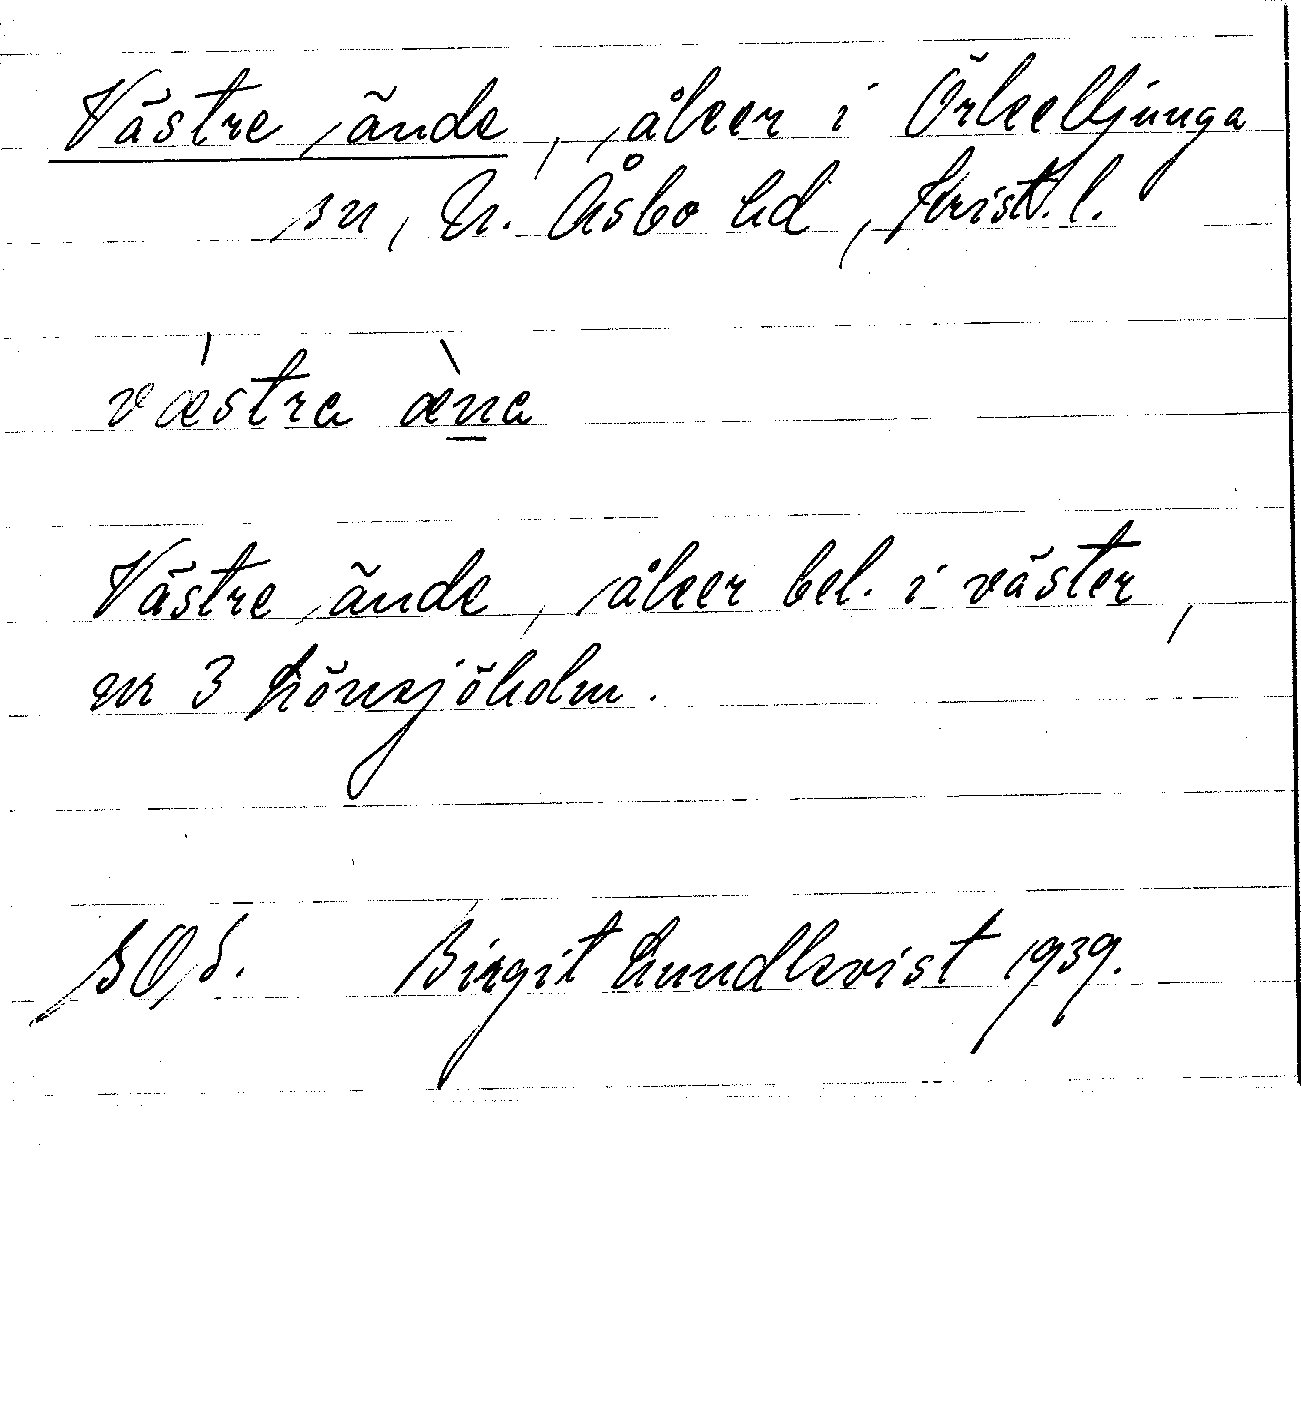 Västre ände, åker i Örkelljunga
sn, N. Åsbo hd, Krist. l.
væstra æna
Västre ände, åker bel. i väster,
nr 3 Lönsjöholm.
Birgit Lundkvist 1939.